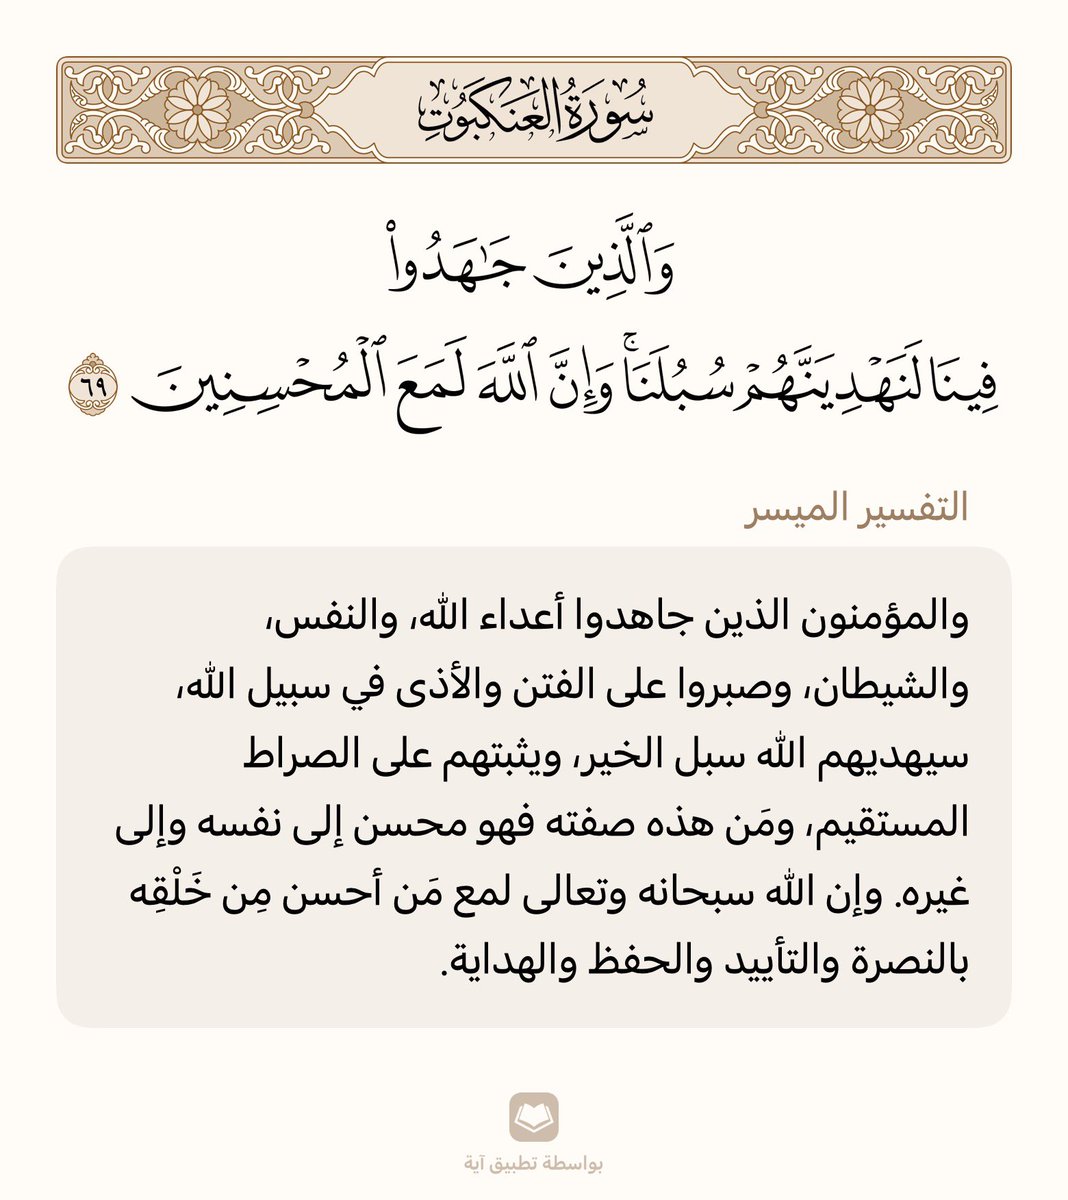 سُورَةُ العَنكَبُوتِ
وَٱلَّذِينَ جَٰهَدُوا۟
فِينَا لَنَهْدِيَنَّهُمْ سُبُلَنَا ۚ وَإِنَّ ٱللَّهَ لَمَعَ ٱلْمُحْسِنِينَ ٦٩
التفسير الميسر
والمؤمنون الذين جاهدوا أعداء الله، والنفس،
والشيطان، وصبروا على الفتن والأذى في سبيل الله،
سيهديهم الله سبل الخير، ويثبتهم على الصراط
المستقيم، ومَن هذه صفته فهو محسن إلى نفسه وإلى
غيره. وإن الله سبحانه وتعالى لمع مَن أحسن مِن خَلْقِه
بالنصرة والتأييد والحفظ والهداية.
بواسطة تطبيق آية